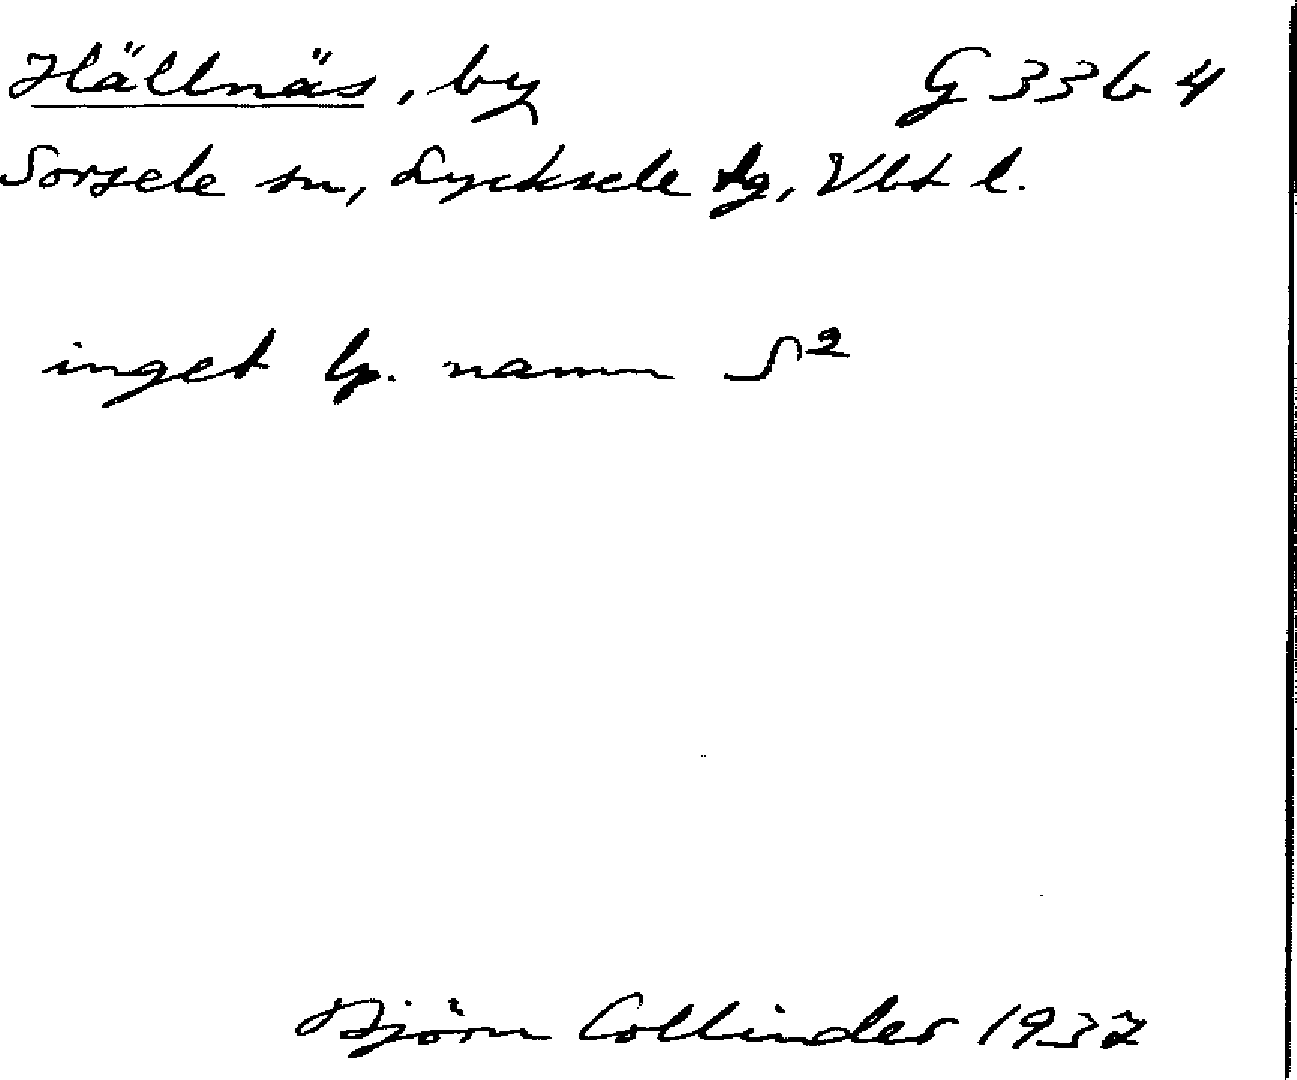 Hällnäs, by G 33 b 4
Sorsele sn, Lycksele tg, Vbt l.
inget lp. namn S²
Björn Collinder 1932